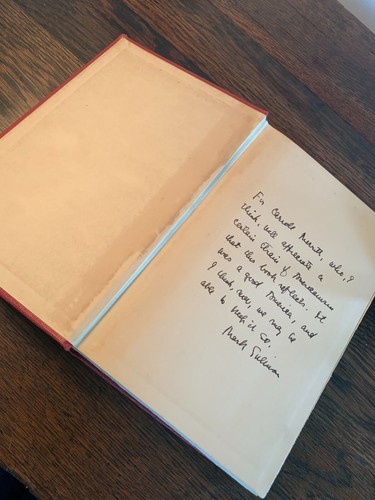 For Carroll Merritt, who, I
think, will appreciate a
certain strain of Americanism
that this book reflects. It
was a good America, and
I think, now, we may be
able to keep it so.
Mark Sullivan